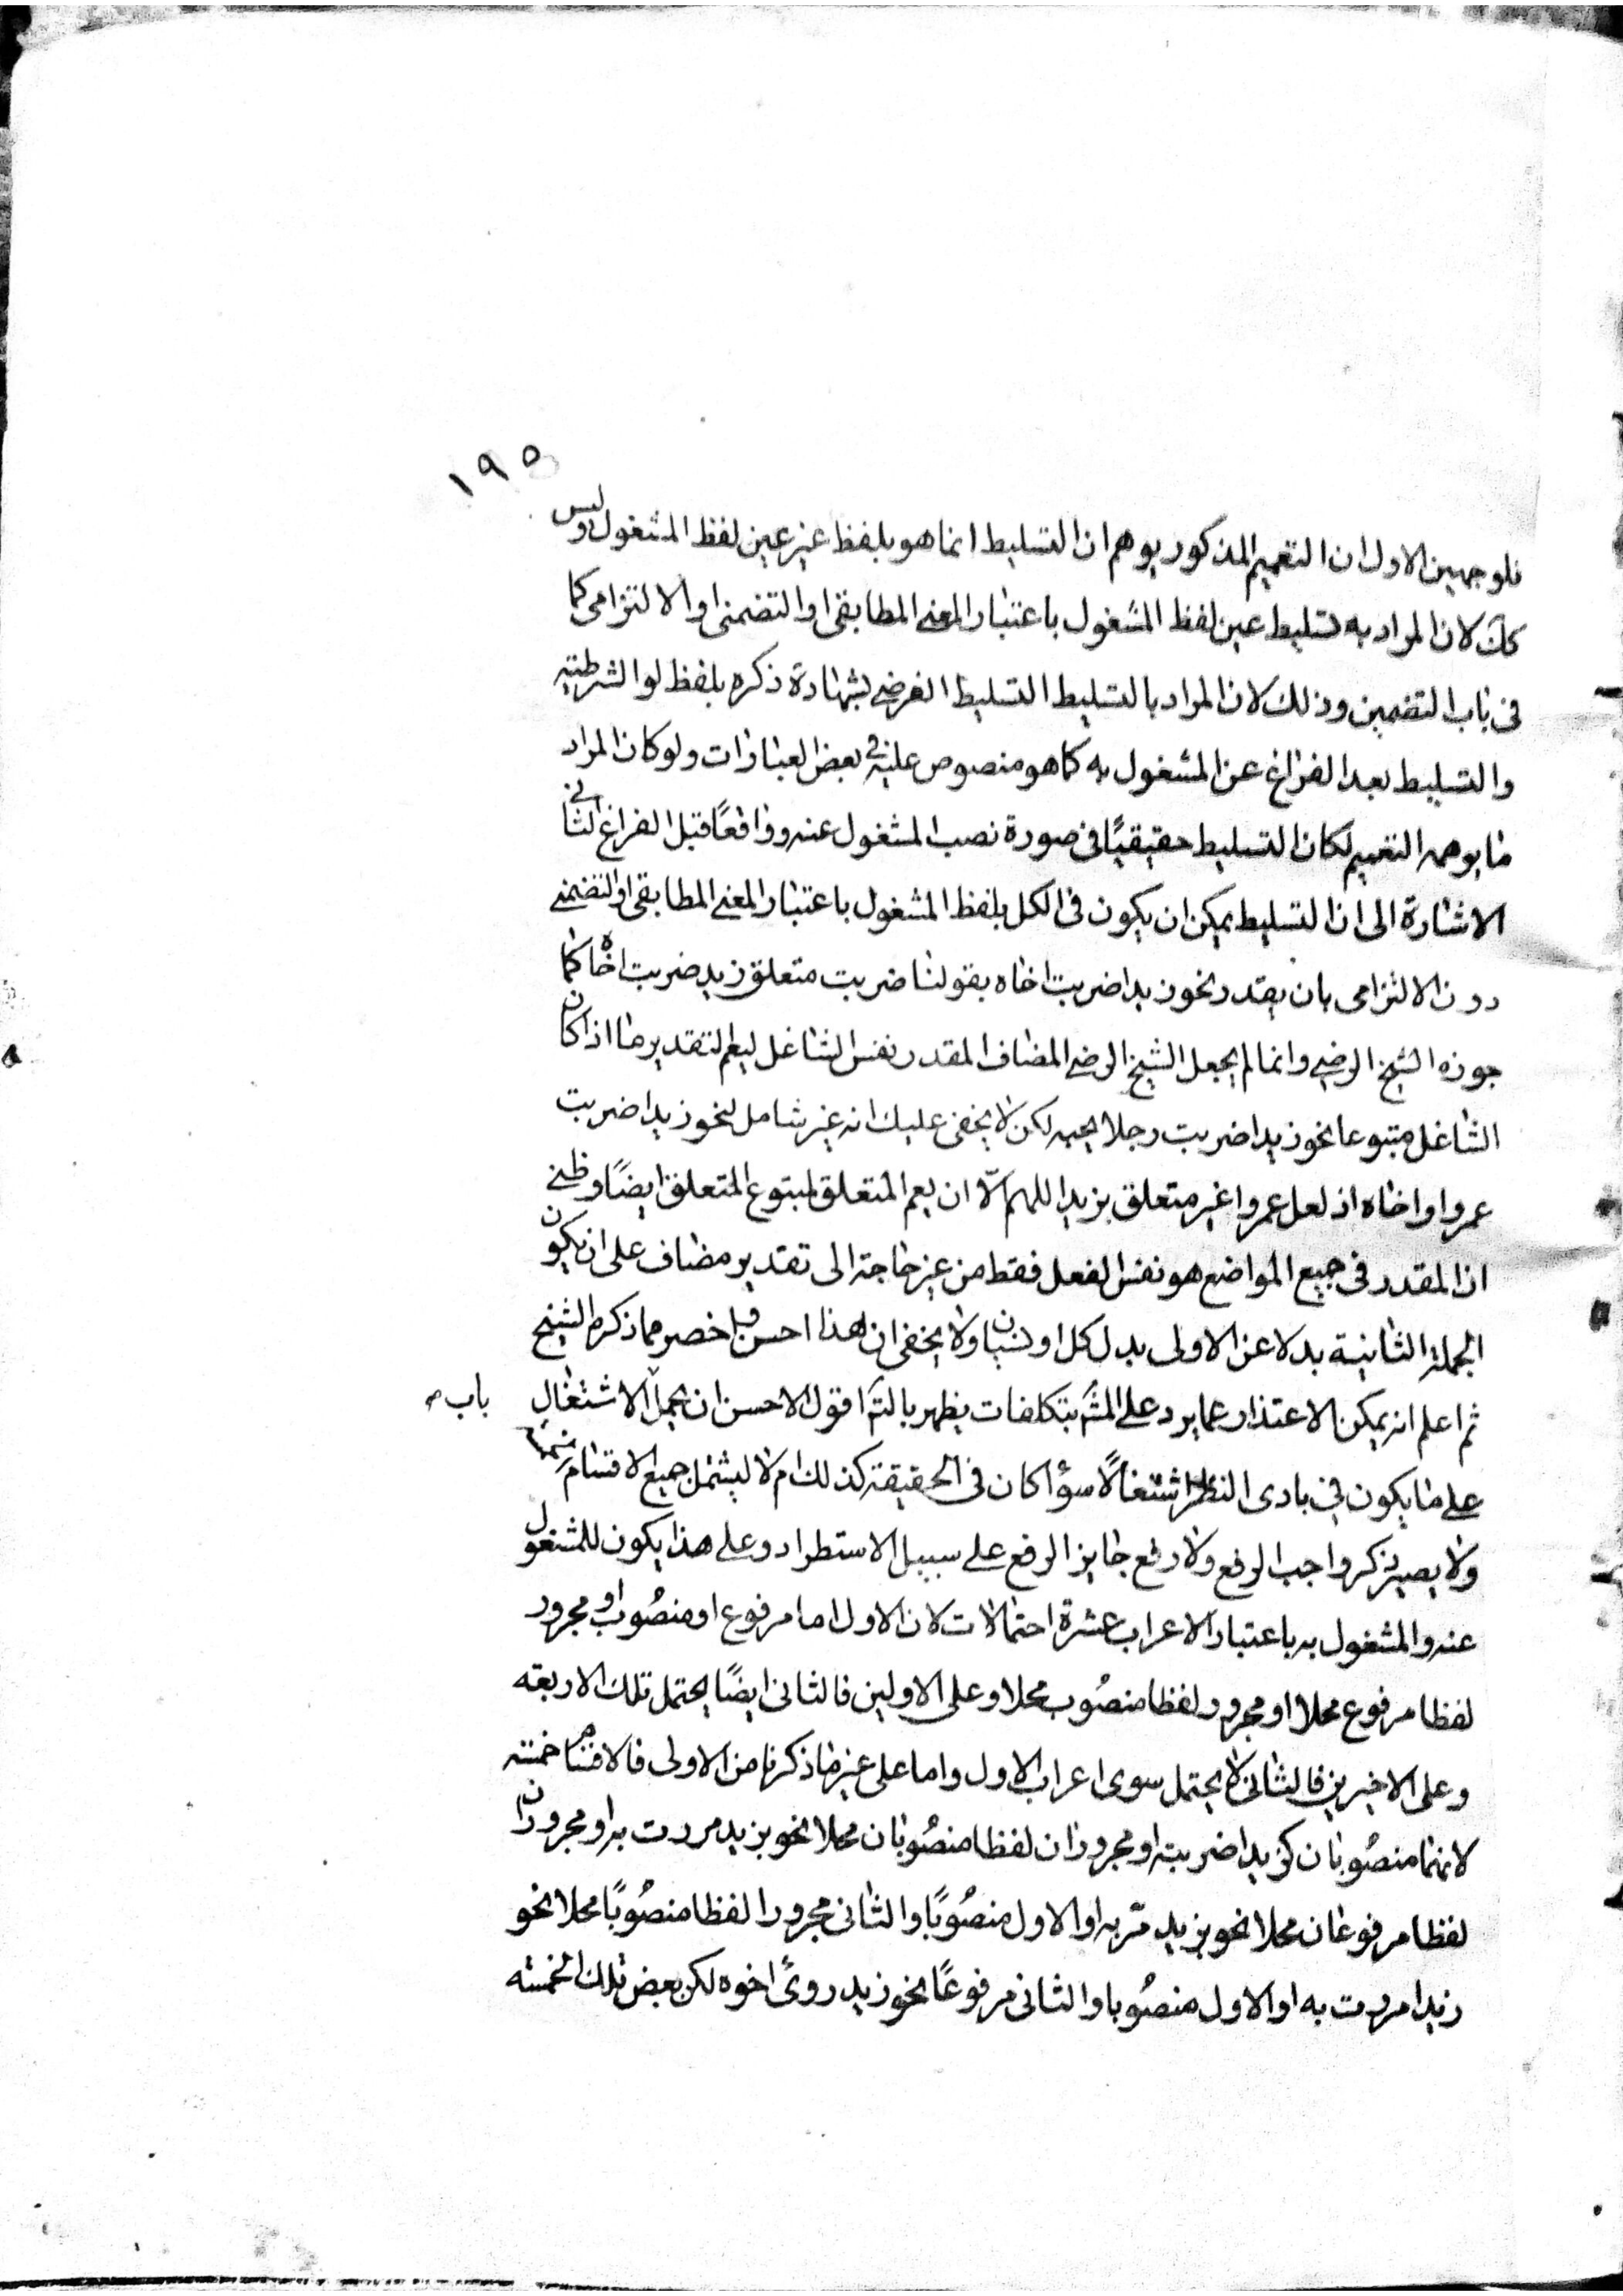 ١٩٥
فلوجهين الاول ان التعميم المذكور يوهم ان التسليط انما هو بلفظ غير عين لفظ المشغول وليس
كك لان المراد به تسليط عين لفظ المشغول باعتبار المعنى المطابقى او التضمنى او الالتزامى كما
فى باب التضمين وذلك لان المراد بالتسليط التسليط الفرضى بشهادة ذكره بلفظ لو الشرطية
والتسليط بعد الفراغ عن المشغول به كما هو منصوص عليه فى بعض العبارات ولو كان المراد
ما يوهمه التعميم لكان التسليط حقيقيًا فى صورة نصب المشغول عنه وواقعًا قبل الفراغ الثانى
الاشارة الى ان التسليط يمكن ان يكون فى الكل بلفظ المشغول باعتبار المعنى المطابقى او التضمنى
دون الالتزامى بان يقدر نحو زيدا ضربت اخاه بقولنا ضربت متعلق زيد ضربت اخاه كما
جوزه الشيخ الرضى وانما لم يجعل الشيخ الرضى المضاف المقدر نفس الشاغل ليعم التقدير ما اذا كان
الشاغل متبوعا نحو زيدا ضربت رجلا يحبه لكن لا يخفى عليك انه غير شامل لنحو زيدا ضربت
عمروا واخاه اذ لعل عمروا غير متعلق بزيد اللهم الّا ان يعم المتعلق لمتبوع المتعلق ايضًا وظنى
ان المقدر فى جميع المواضع هو نفس الفعل فقط من غير حاجة الى تقدير مضاف على ان يكون
الجملة الثانية بدلا عن الاولى بدل كل او بيان ولا يخفى ان هذا احسن و اخصر مما ذكره الشيخ
ثم اعلم انه يمكن الاعتذار عما يرد على المش بتكلفات يظهر بالت اقول الاحسن ان يحمل الاشتغال باب
على ما يكون فى بادى النظر اشتغالًا سواء كان فى الحقيقة كذلك ام لا ليشتمل جميع الاقسام
ولا يصير ذكر واجب الرفع ولا رفع جايز الرفع على سبيل الاستطراد وعلى هذا يكون للمشغول
عنه والمشغول به باعتبار الاعراب عشرة احتمالات لان الاول اما مرفوع او منصوب او مجرور
لفظا مرفوع محلا او مجرور لفظا منصوب محلا وعلى الاولين فالثانى ايضًا يحتمل تلك الاربعة
وعلى الاخيرين فالثانى لا يحتمل سوى اعراب الاول واما على غير ما ذكرنا من الاولى فالاقسام خمسة
لانهما منصوبان كزيدا ضربته او مجروران لفظا منصوبان محلا نحو بزيد مررت به او مجروران
لفظا مرفوعان محلا نحو بزيد مرّ به او الاول منصوبًا والثانى مجرورا لفظا منصوبًا محلا نحو
زيدا مررت به او الاول منصوبا والثانى مرفوعًا نحو زيد اخوه لكن بعض تلك الخمسة